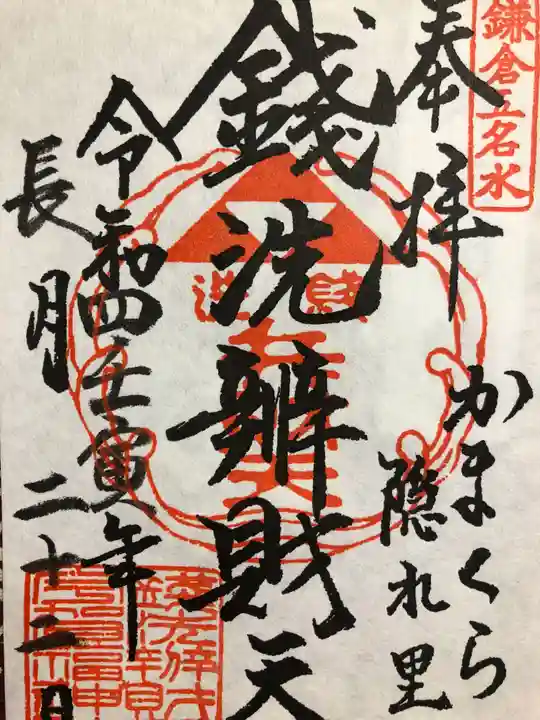 鎌倉五名水
奉拝
かまくら
隠れ里
銭洗辨財天
令和四壬寅年
長月
二十二日